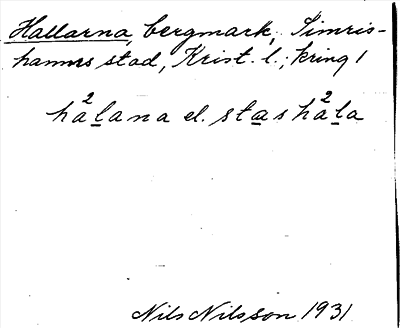 Hallarna, bergmark, Simris-
hamns stad, Krist. l.; kring 1
há²lana el. stashá²la
Nils Nilsson 1931